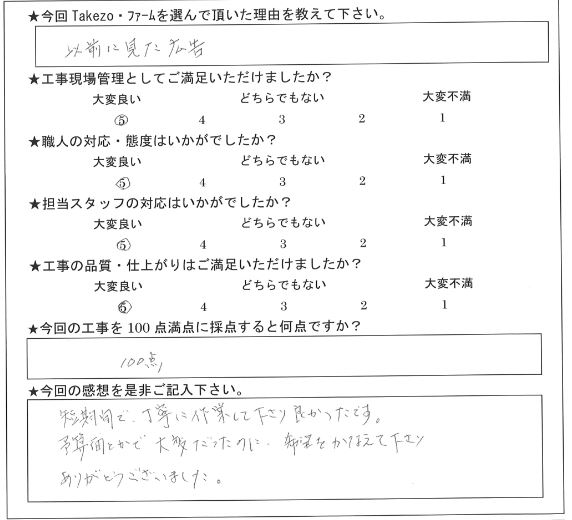 ★今回 Takezo・ファームを選んで頂いた理由を教えて下さい。
以前に見た広告
★工事現場管理としてご満足いただけましたか？
大変良い どちらでもない 大変不満
⑤ 4 3 2 1
★職人の対応・態度はいかがでしたか？
大変良い どちらでもない 大変不満
⑤ 4 3 2 1
★担当スタッフの対応はいかがでしたか？
大変良い どちらでもない 大変不満
⑤ 4 3 2 1
★工事の品質・仕上がりはご満足いただけましたか？
大変良い どちらでもない 大変不満
⑤ 4 3 2 1
★今回の工事を 100 点満点に採点すると何点ですか？
100点
★今回の感想を是非ご記入下さい。
短期間で、丁寧に作業して下さり良かったです。
予算面とかで大変だったのに、希望をかなえて下さり
ありがとうございました。